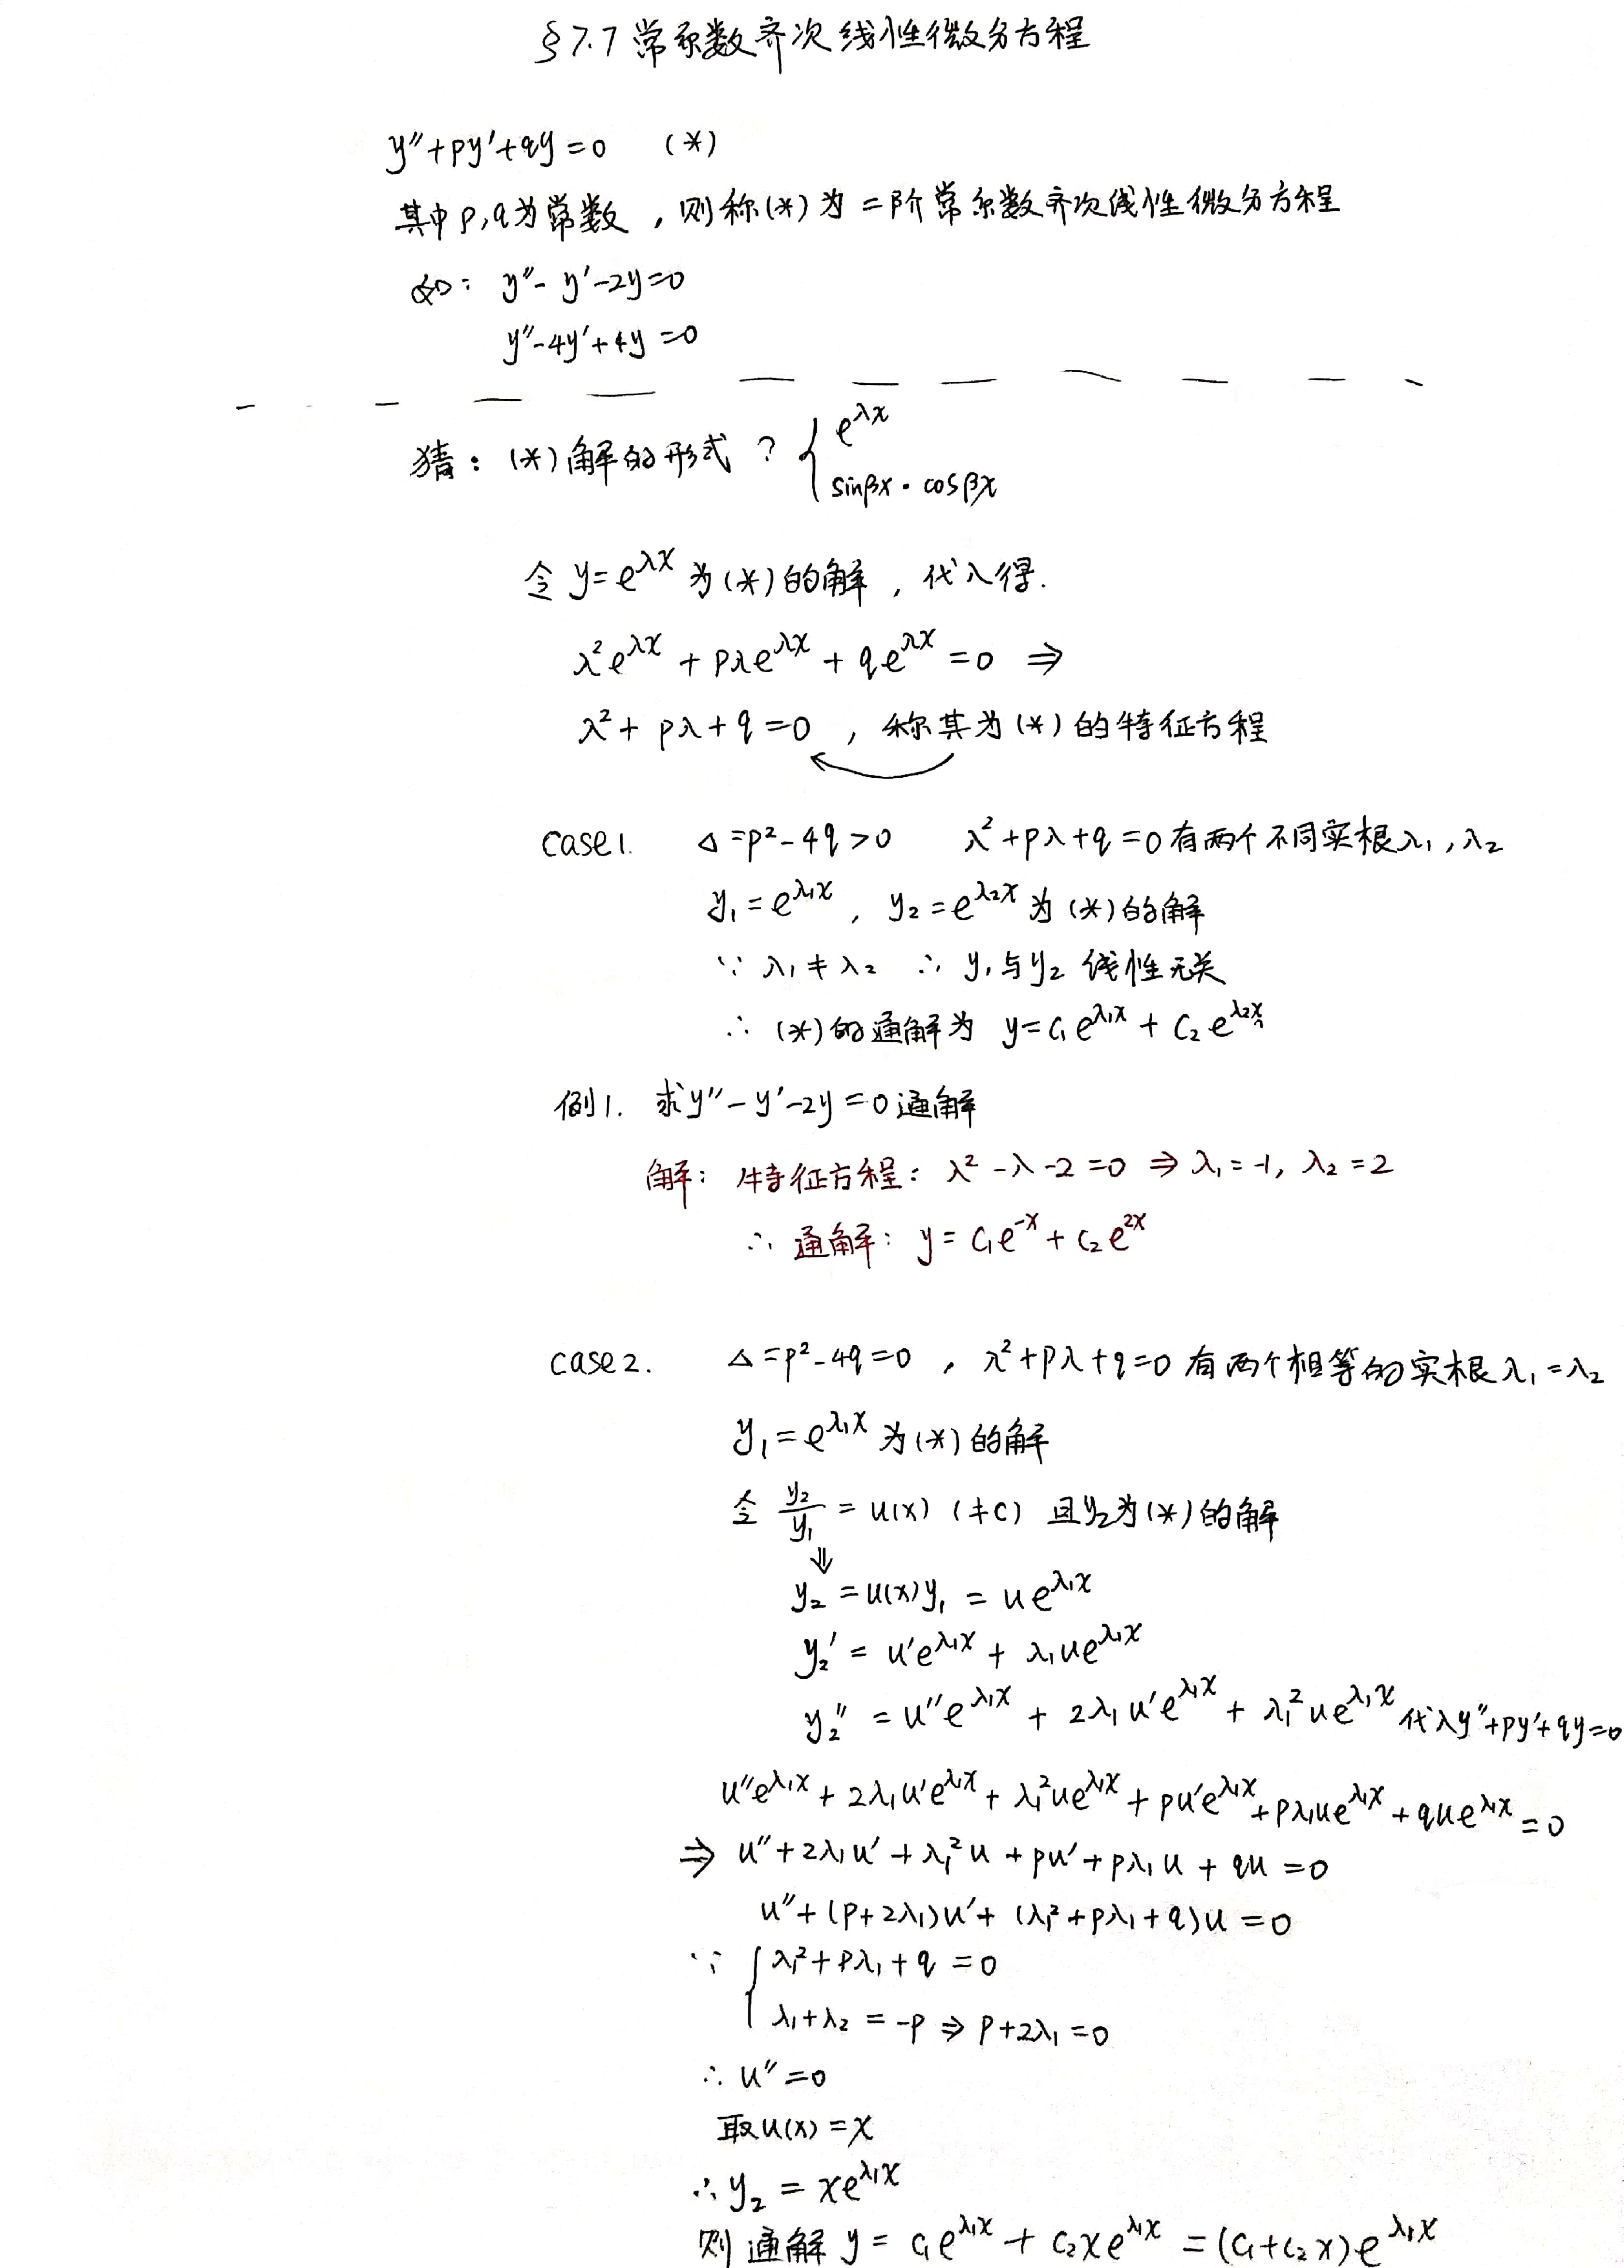 §7.7 常系数齐次线性微分方程
y''+py'+qy=0 (*)
其中p,q为常数,则称(*)为二阶常系数齐次线性微分方程
如: y''-y'-2y=0
y''-4y'+4y=0
猜: (*)解的形式? { e^{λx}
sinβx·cosβx
令 y=e^{λx} 为(*)的解,代入得.
λ²e^{λx} + pλe^{λx} + qe^{λx} = 0 ⇒
λ² + pλ + q = 0 , 称其为(*)的特征方程
case1. Δ=p²-4q>0 λ²+pλ+q=0有两个不同实根λ₁,λ₂
y₁=e^{λ₁x}, y₂=e^{λ₂x} 为(*)的解
∵ λ₁≠λ₂ ∴ y₁与y₂ 线性无关
∴ (*)的通解为 y=C₁e^{λ₁x} + C₂e^{λ₂x}
例1. 求y''-y'-2y=0通解
解: 特征方程: λ²-λ-2=0 ⇒ λ₁=-1, λ₂=2
∴ 通解: y=C₁e^{-x}+C₂e^{2x}
case2. Δ=p²-4q=0 , λ²+pλ+q=0 有两个相等的实根λ₁=λ₂
y₁=e^{λ₁x} 为(*)的解
令 y₂/y₁ = u(x) (≠C) 且y₂为(*)的解
⇓
y₂=u(x)y₁ = ue^{λ₁x}
y₂' = u'e^{λ₁x} + λ₁ue^{λ₁x}
y₂'' = u''e^{λ₁x} + 2λ₁u'e^{λ₁x} + λ₁²ue^{λ₁x} 代入y''+py'+qy=0
u''e^{λ₁x} + 2λ₁u'e^{λ₁x} + λ₁²ue^{λ₁x} + pu'e^{λ₁x} + pλ₁ue^{λ₁x} + que^{λ₁x} = 0
⇒ u''+2λ₁u'+λ₁²u+pu'+pλ₁u+qu=0
u''+(p+2λ₁)u'+(λ₁²+pλ₁+q)u=0
∵ { λ₁²+pλ₁+q=0
λ₁+λ₂=-p ⇒ p+2λ₁=0
∴ u''=0
取u(x)=x
∴ y₂=xe^{λ₁x}
则通解 y=C₁e^{λ₁x}+C₂xe^{λ₁x}=(C₁+C₂x)e^{λ₁x}